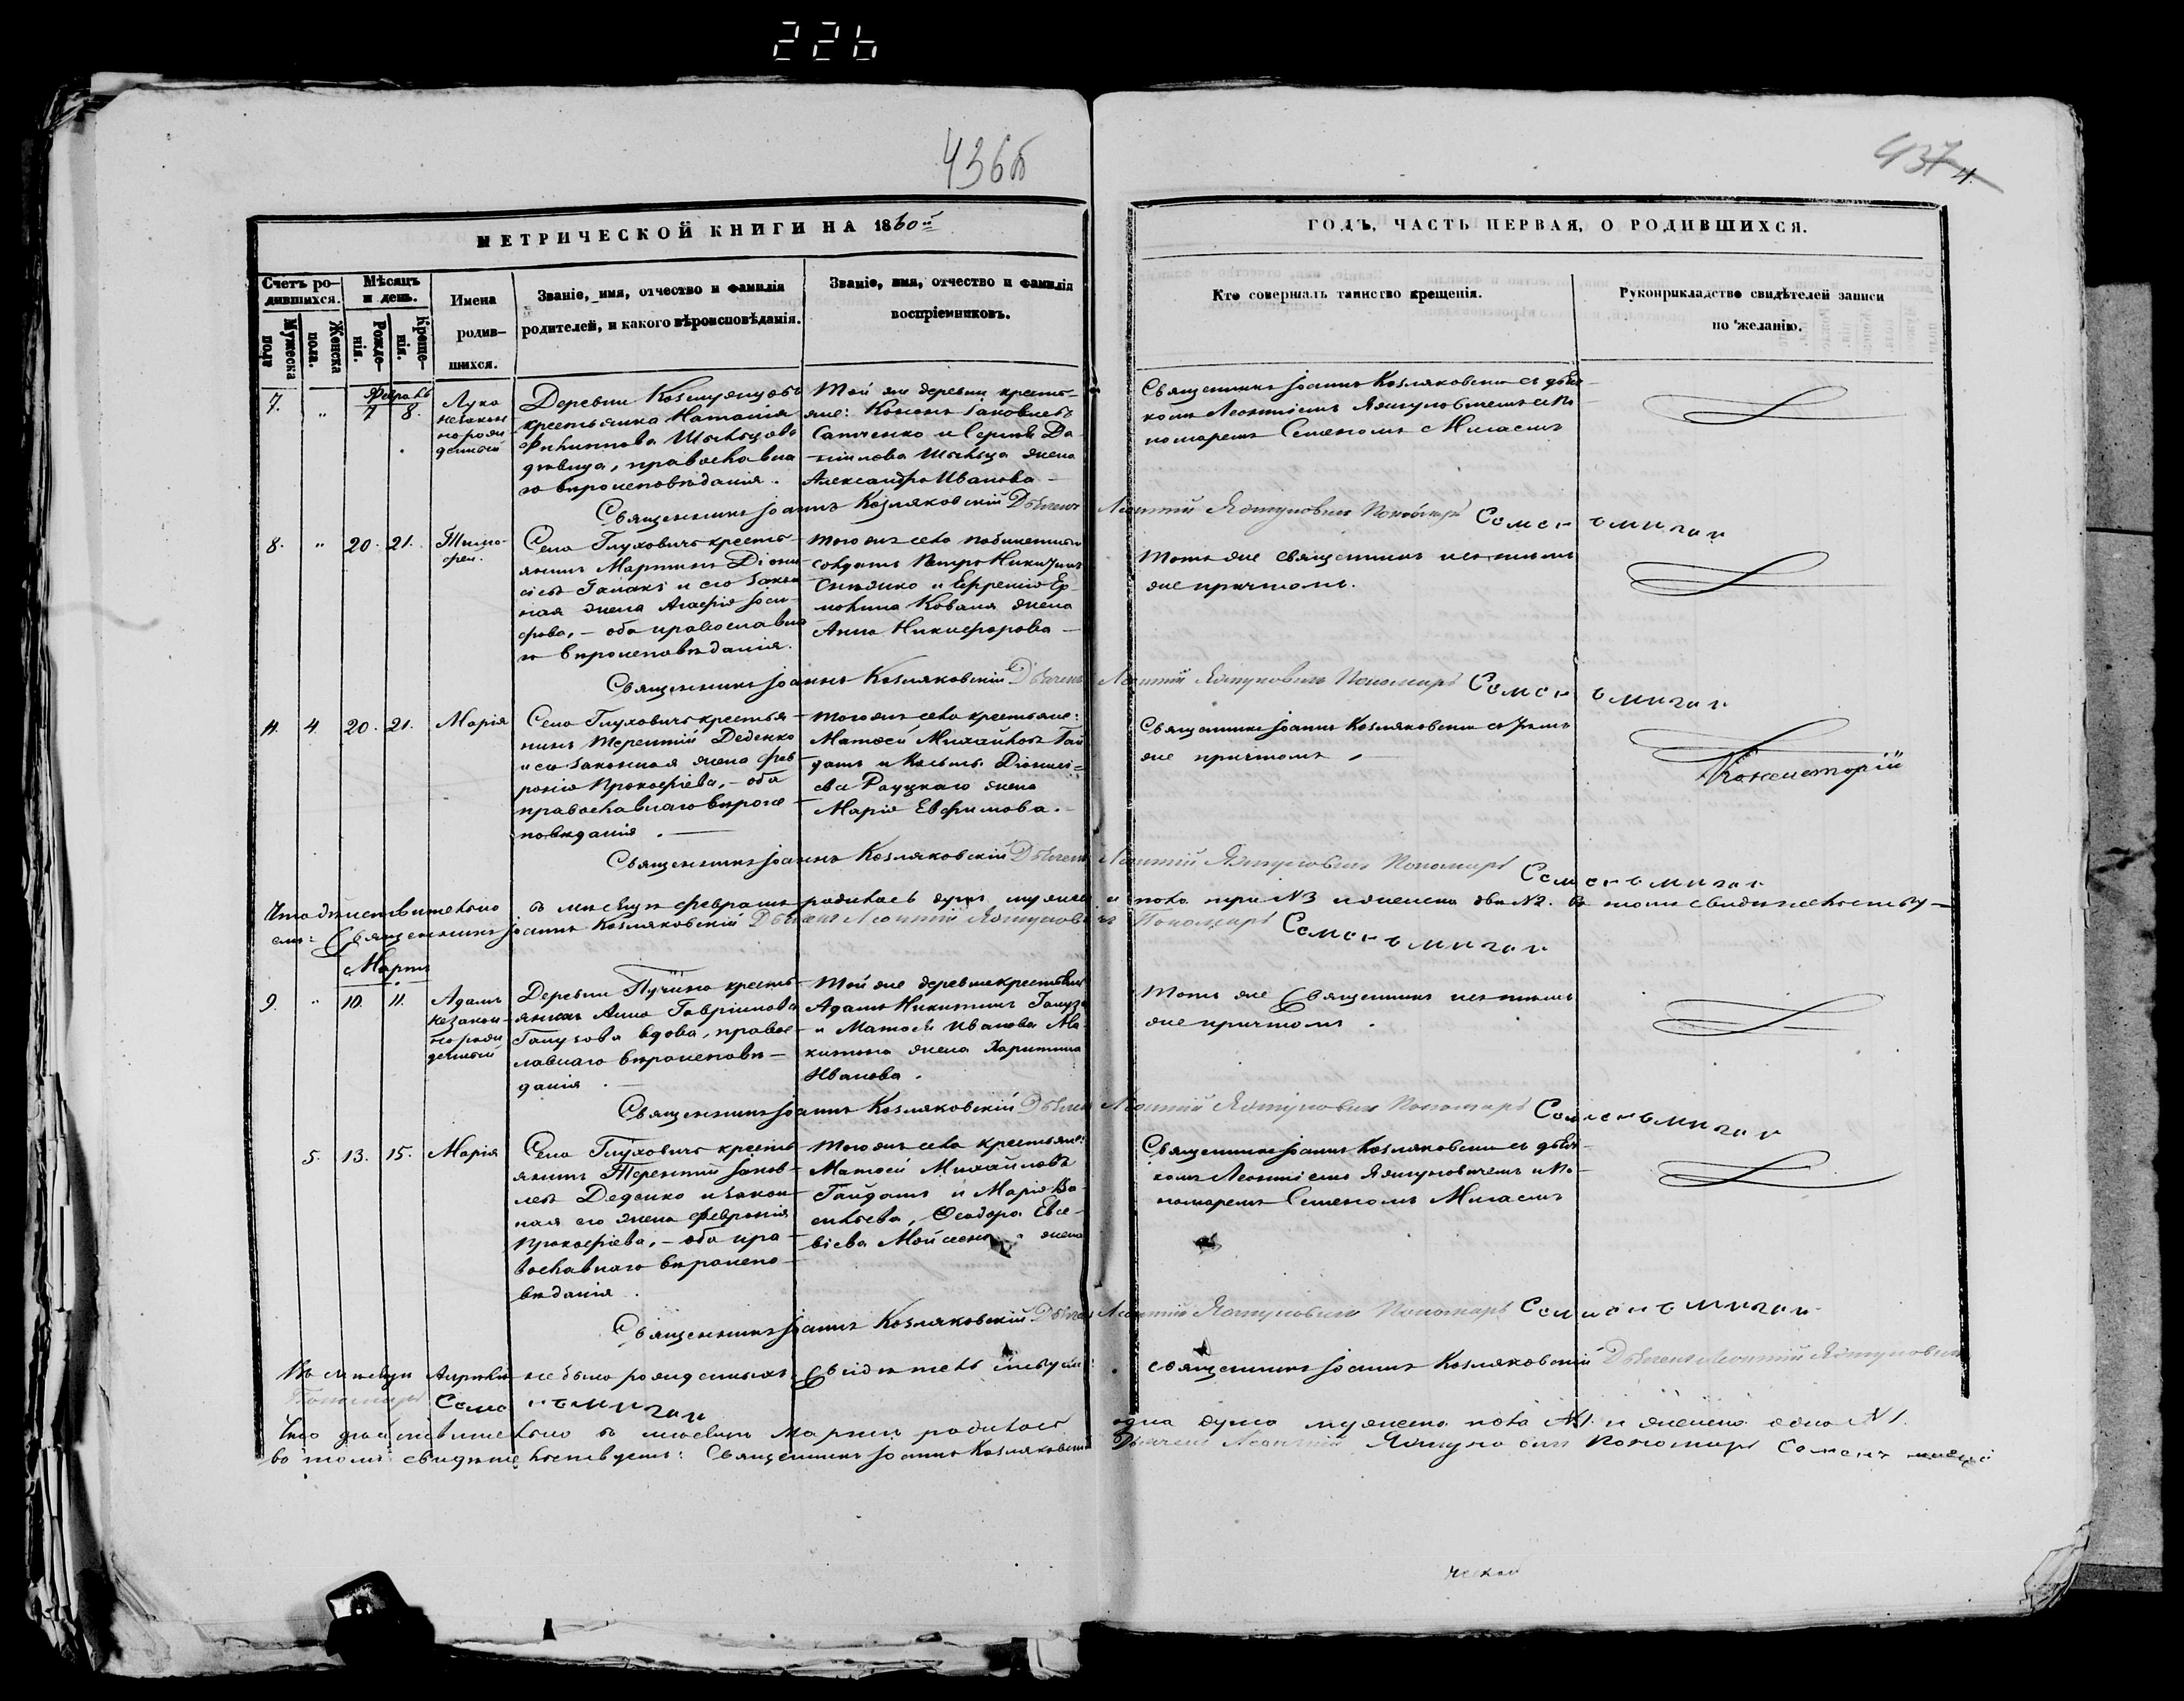 226
436б
437
МЕТРИЧЕСКОЙ КНИГИ НА 1860й
ГОДЪ, ЧАСТЬ ПЕРВАЯ, О РОДИВШИХСЯ.
Счетъ ро-
дившихся.
Мужеска
пола
Женска
пола.
Мѣсяцъ
и день.
Рожде-
нія.
Креще-
нія.
Имена
родив-
шихся.
Званіе, имя, отчество и фамилія
родителей, и какого вѣроисповѣданія.
Званіе, имя, отчество и фамилія
воспріемниковъ.
Кто совершалъ таинство крещенія.
Рукоприкладство свидѣтелей записи
по желанію.
7. " 7 8.
Лука
незакон
норож
денный
Деревни
крестьянка Наталія
Филиппова
дѣвица, православна
го вѣроисповѣданія.
Той же деревни кресть-
яне: Кононъ Іаковлевъ
Савченко и Сергѣя Да-
ніилова жена
Александра Иванова
Священникъ Іоаннъ Козляковскій съ дьяч
комъ Леонтіемъ Ятуновичемъ и по
номаремъ Семеномъ Мигаемъ
Священникъ Іоаннъ Козляковскій Дьячекъ Леонтій Ятуновичъ Пономарь Семенъ Мигай
8. " 20. 21.
Тимо-
фей.
Села Глуховичъ кресть-
янинъ Мартинъ Діони
сіевъ и его закон
ная жена Агафія Іоси-
фова, - оба православна
го вѣроисповѣданія.
Того же села
солдатъ Петръ Никитинъ
и Ефремія Ер-
молина Коваля жена
Анна Никифорова
Тотъ же священникъ и съ тѣмъ
же причтомъ.
Священникъ Іоаннъ Козляковскій Дьячекъ Леонтій Ятуновичъ Пономарь Семенъ Мигай
4 20. 21. Марія
Села Глуховичъ крестья-
нинъ Терентій Деденко
и его законная жена Фев
ронія Прокофіева, - оба
православнаго вѣроис
повѣданія.
Того же села крестьяне:
Матѳей Михайловъ Гай
дашъ и Діонисі=
ева Рауцкаго жена
Марія Евфимова.
Священникъ Іоаннъ Козляковскій съ тѣмъ
же причтомъ.
Священникъ Іоаннъ Козляковскій Дьячекъ Леонтій Ятуновичъ Пономарь Семенъ Мигай
Что дѣйствительно въ мѣсяцѣ февралѣ родилось душъ мужеска пола три №3 и женска двѣ №2. въ томъ свидѣтельству-
емъ: Священникъ Іоаннъ Козляковскій Дьячекъ Леонтій Ятуновичъ Пономарь Семенъ Мигай
Мартъ
9. " 10. 11.
Адамъ
незакон-
норож
денный
Деревни кресть-
янка Анна Гавріилова
вдова, правос-
лавнаго вѣроисповѣ-
данія.
Той же деревни крестьяне
Адамъ Никитинъ
и Матѳея Иванова
жена Харитина
Иванова.
Тотъ же Священникъ и съ тѣмъ
же причтомъ.
Священникъ Іоаннъ Козляковскій Дьячекъ Леонтій Ятуновичъ Пономарь Семенъ Мигай
5. 13. 15. Марія
Села Глуховичъ кресть
янинъ Терентій Іаков-
левъ Деденко и закон-
ная его жена Февронія
Прокофіева, - оба пра-
вославнаго вѣроиспо-
вѣданія.
Того же села крестьяне:
Матѳей Михайловъ
Гайдашъ и Марія Ва-
сильева, Ѳеодора Евсе-
віева жена
Священникъ Іоаннъ Козляковскій съ дьяч-
комъ Леонтіемъ Ятуновичемъ и по-
номаремъ Семеномъ Мигаемъ
Священникъ Іоаннъ Козляковскій Дьячекъ Леонтій Ятуновичъ Пономарь Семенъ Мигай
Въ мѣсяцѣ Апрѣлѣ не было рожденныхъ. Свидѣтельствуемъ: Священникъ Іоаннъ Козляковскій Дьячекъ Леонтій Ятуновичъ
Пономарь Семенъ Мигай
Что дѣйствительно въ мѣсяцѣ Мартѣ родилось одна душа мужеска пола №1. и женска одна №1.
въ томъ свидѣтельствуемъ: Священникъ Іоаннъ Козляковскій Дьячекъ Леонтій Ятуновичъ Пономарь Семенъ Мигай